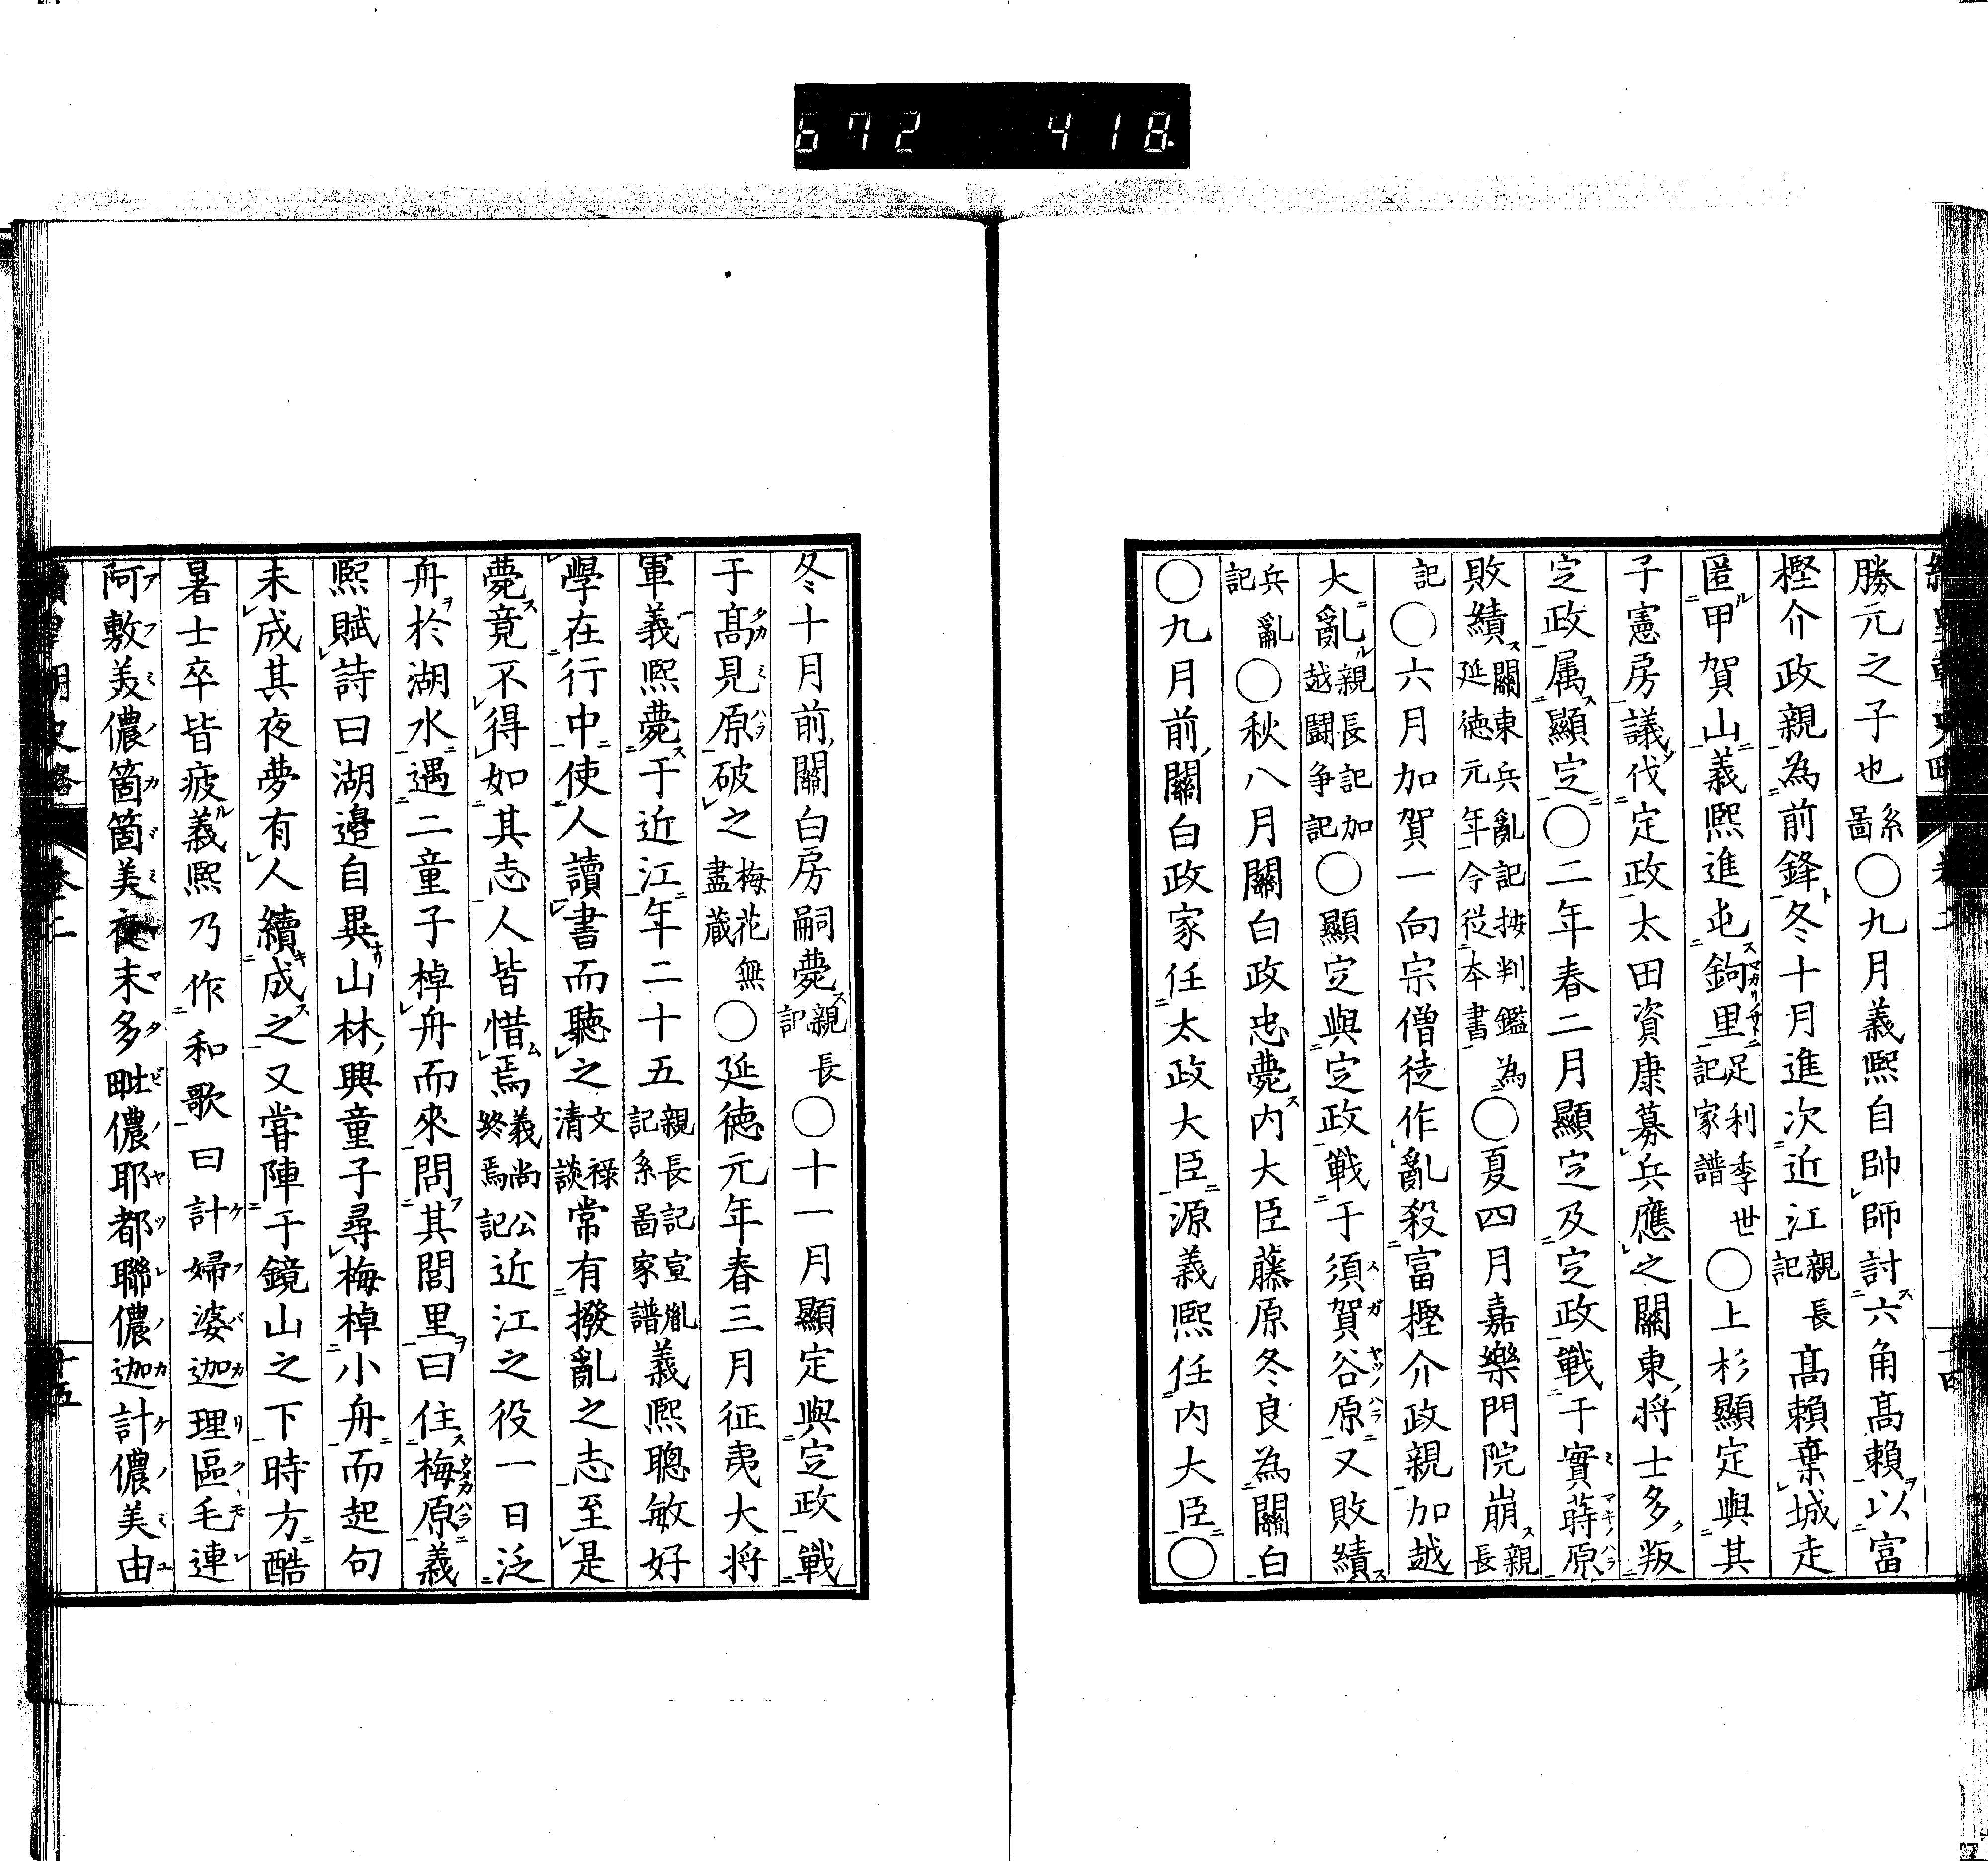 672 418
勝元之子也系圖○九月義熙自帥師討六角髙賴以富
樫介政親為前鋒冬十月進次近江親長記髙賴棄城走
匿甲賀山義熙進屯鉤里足利季世記家譜○上杉顯定與其
子憲房議伐定政太田資康募兵應之關東將士多叛
定政属顯定○二年春二月顯定及定政戰于實蒔原
敗績關東兵亂記按判鑑為延徳元年今從本書○夏四月嘉樂門院崩親長
記○六月加賀一向宗僧徒作亂殺富樫介政親加越
大亂親長記加越闘争記○顯定與定政戰于須賀谷原又敗績
兵亂記○秋八月關白政忠薨内大臣藤原冬良為關白
○九月前關白政家任太政大臣源義熙任内大臣○
冬十月前關白房嗣薨親長記○十一月顯定與定政戰
于髙見原破之梅花無盡蔵○延徳元年春三月征夷大将
軍義熙薨于近江年二十五親長記宣胤記系圖家譜義熙聰敏好
學在行中使人讀書而聽之文禄清談常有撥亂之志至是
薨竟不得如其志人皆惜焉義尚公終焉記近江之役一日泛
舟於湖水遇二童子棹舟而來問其閭里曰住梅原義
熙賦詩曰湖邉自異山林興童子尋梅棹小舟而起句
未成其夜夢有人續成之又甞陣于鏡山之下時方酷
暑士卒皆疲義熙乃作和歌曰計婦婆迦理區毛連
阿敷美儂箇箇美夜末多毗儂耶都聯儂迦計儂美由